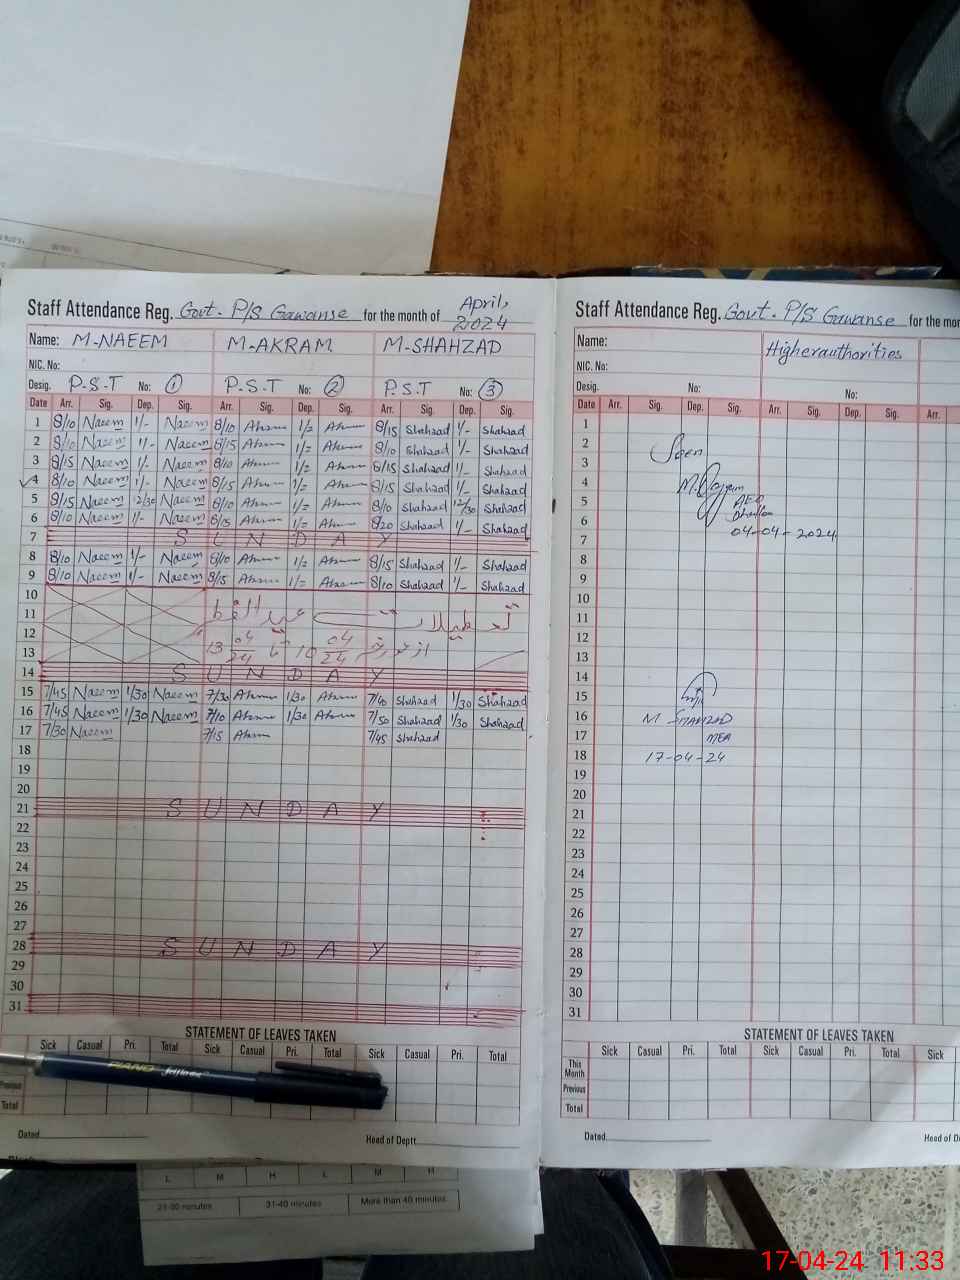 Staff Attendance Reg. Govt. P/S Gawanse for the month of April, 2024
Name: M-NAEEM M-AKRAM M-SHAHZAD
NIC. No:
Desig. P.S.T No: 1 P.S.T No: 2 P.S.T No: 3
Date Arr. Sig. Dep. Sig. Arr. Sig. Dep. Sig. Arr. Sig. Dep. Sig.
1 8/10 Naeem 1/- Naeem 8/10 Akram 1/= Akram 8/15 Shahzad 1/- Shahzad
2 8/10 Naeem 1/- Naeem 8/15 Akram 1/= Akram 8/10 Shahzad 1/- Shahzad
3 8/15 Naeem 1/- Naeem 8/10 Akram 1/= Akram 8/15 Shahzad 1/- Shahzad
4 8/10 Naeem 1/- Naeem 8/15 Akram 1/= Akram 8/15 Shahzad 1/- Shahzad
5 8/15 Naeem 12/30 Naeem 8/10 Akram 1/= Akram 8/10 Shahzad 12/30 Shahzad
6 8/10 Naeem 1/- Naeem 8/15 Akram 1/= Akram 8/20 Shahzad 1/- Shahzad
7 SUNDAY
8 8/10 Naeem 1/- Naeem 8/10 Akram 1/= Akram 8/15 Shahzad 1/- Shahzad
9 8/10 Naeem 1/- Naeem 8/15 Akram 1/= Akram 8/10 Shahzad 1/- Shahzad
10
11 تعطیلات عید الفطر
12
13 از مورخہ 10 04/24 تا 13 04/24
14 SUNDAY
15 7/45 Naeem 1/30 Naeem 7/30 Akram 1/30 Akram 7/40 Shahzad 1/30 Shahzad
16 7/45 Naeem 1/30 Naeem 7/10 Akram 1/30 Akram 7/50 Shahzad 1/30 Shahzad
17 7/30 Naeem 7/15 Akram 7/45 Shahzad
18
19
20
21 SUNDAY
22
23
24
25
26
27
28 SUNDAY
29
30
31
STATEMENT OF LEAVES TAKEN
Sick Casual Pri. Total Sick Casual Pri. Total Sick Casual Pri. Total
Previous
Total
Dated Head of Deptt.
PIANO
Staff Attendance Reg. Govt. P/S Gawanse for the
Name: Higherauthorities
NIC. No:
Desig. No: No:
Date Arr. Sig. Dep. Sig. Arr. Sig. Dep. Sig. Arr.
1
2
3 Seen
4
5 AEO
6
7 04-04-2024
8
9
10
11
12
13
14
15
16 M SHAHZAD
17 MEA
18 17-04-24
19
20
21
22
23
24
25
26
27
28
29
30
31
STATEMENT OF LEAVES TAKEN
Sick Casual Pri. Total Sick Casual Pri. Total Sick
This Month
Previous
Total
Dated Head of
L M H L M H
21-30 minutes 31-40 minutes More than 40 minutes
17-04-24 11:33